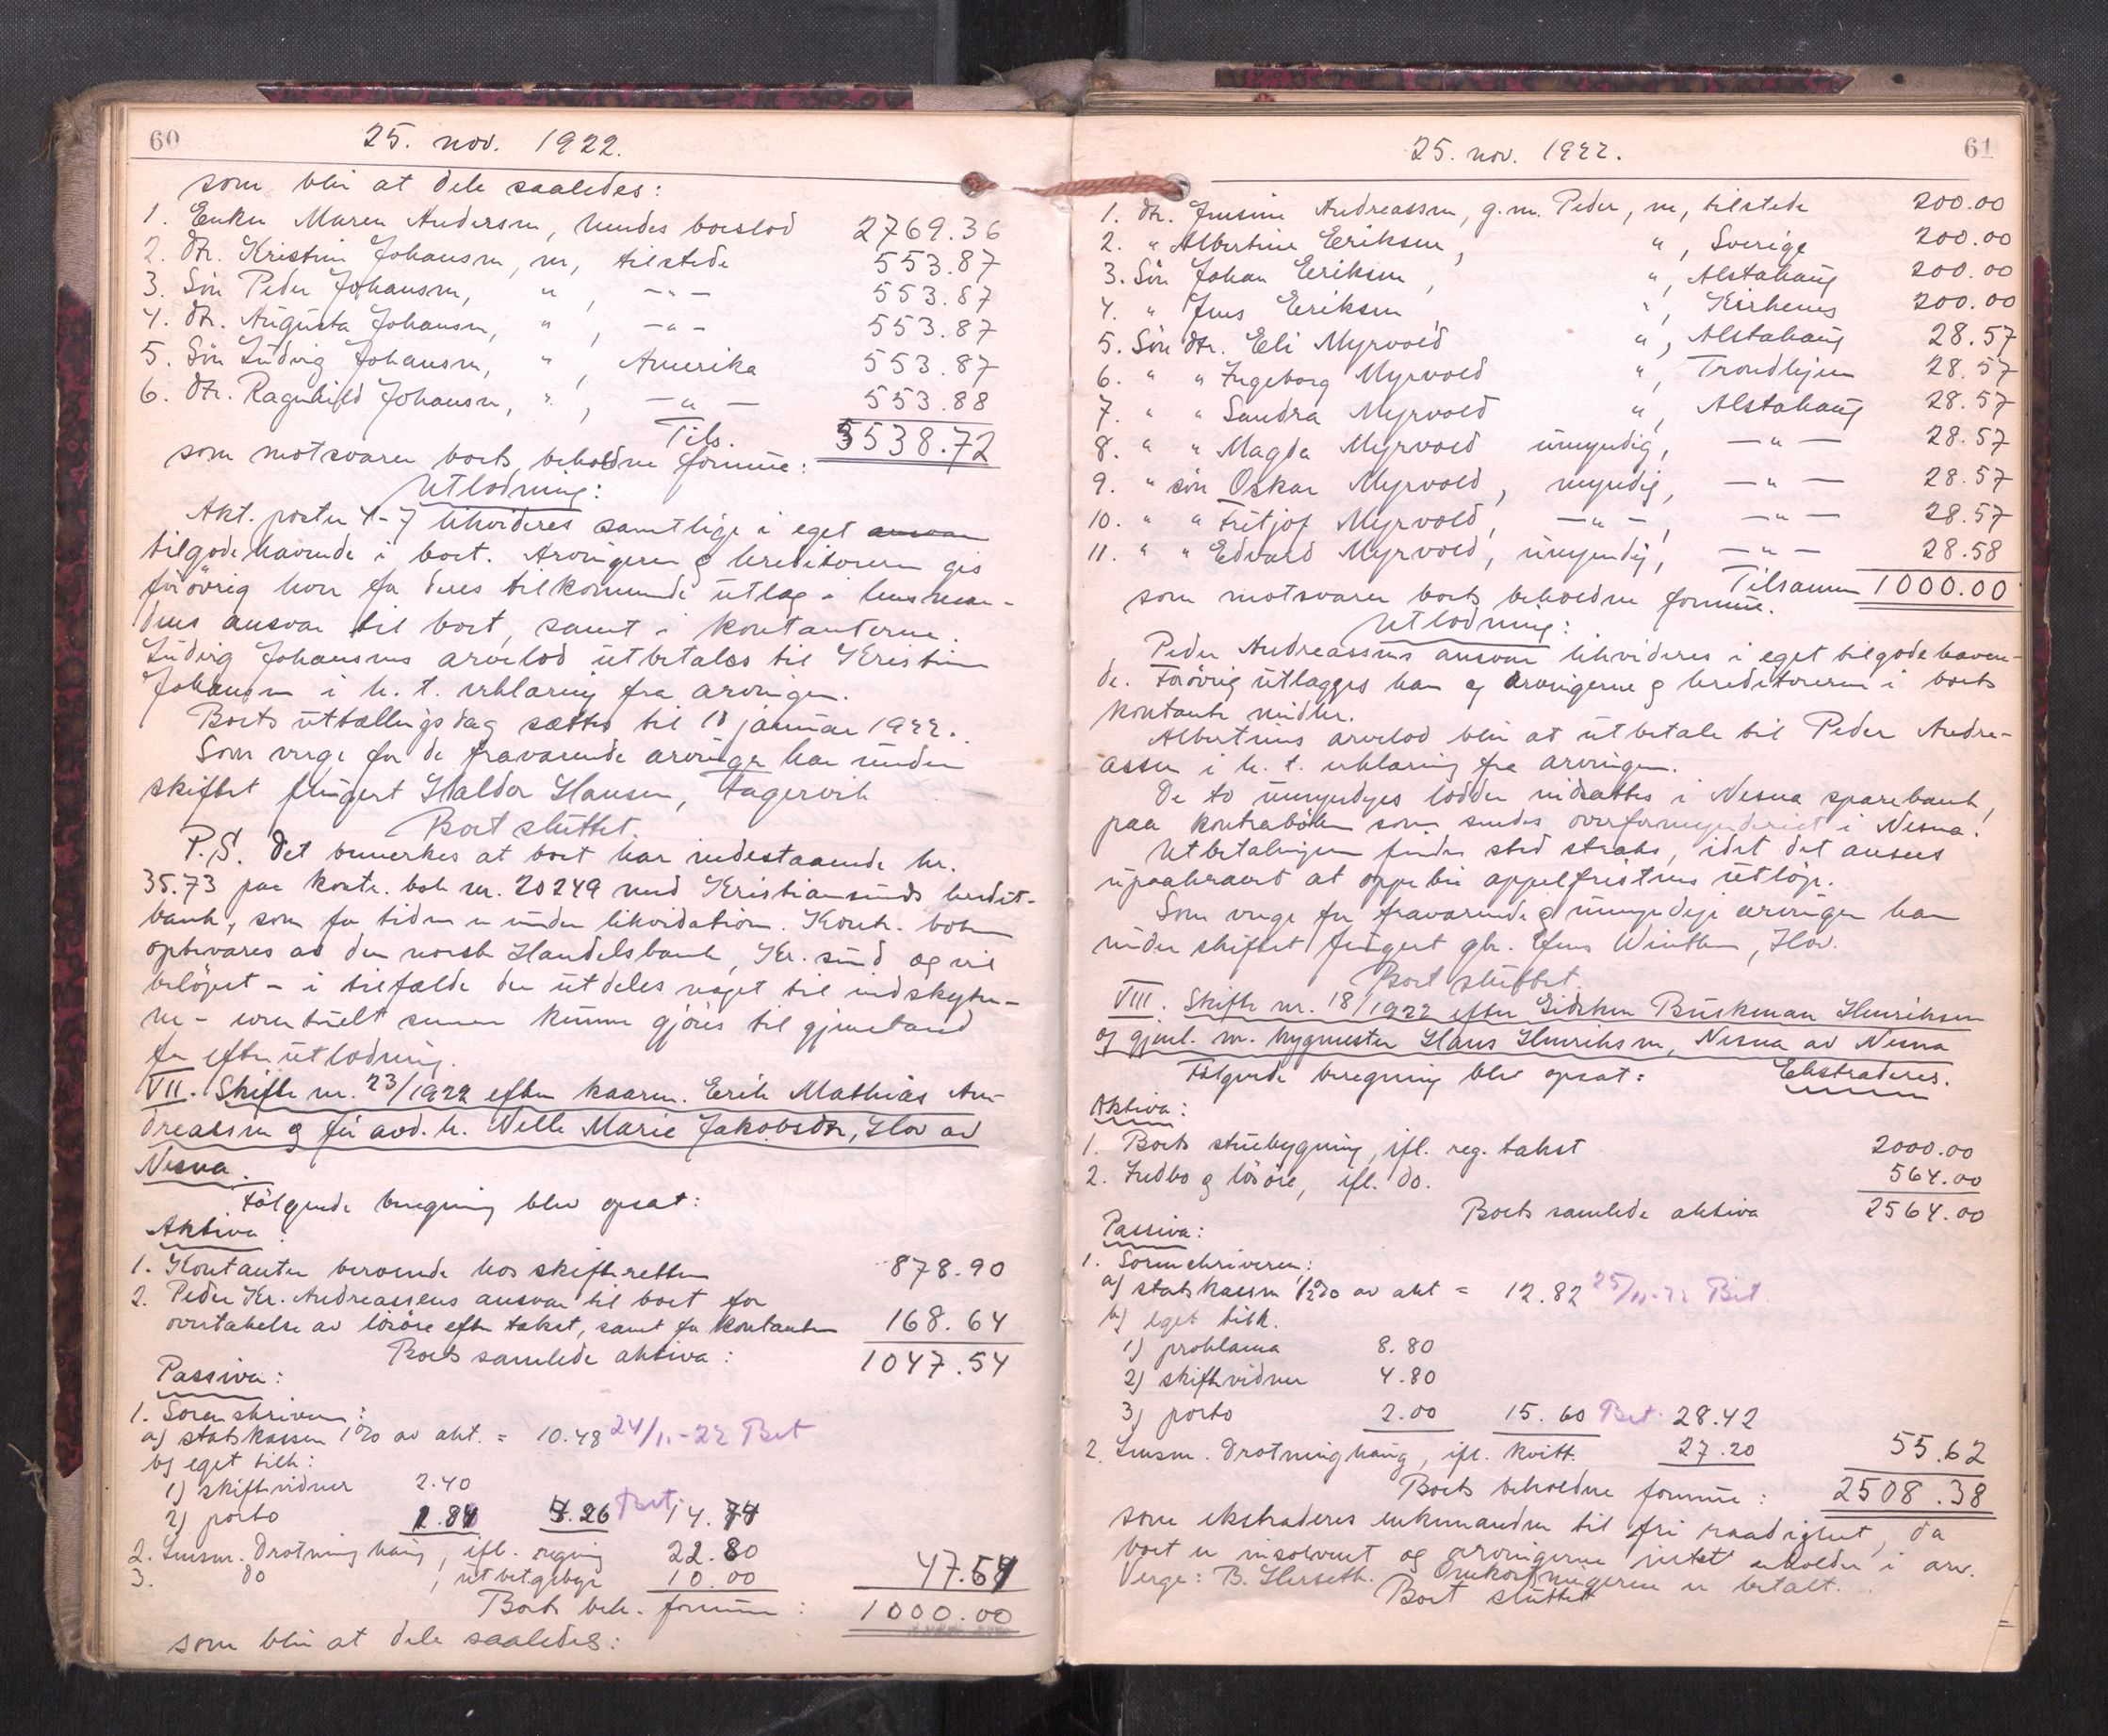 60
25. nov. 1922.
som blir at dele saaledes:
1. Enken Maren Andersen, hendes boeslod 2769.36
2. Dtr. Kristine Johansen, m, tilstede 553.87
3. Sön Peder Johansen, " , — " — 553.87
4. Dtr. Augusta Johansen, " , — " — 553.87
5. Sön Ludvig Johansen, " , Amerika 553.87
6. Dtr. Ragnhild Johansen, " , — " — 553.88
Tils. 5538.72
som motsvarer boets beholdne formue:
Utlodning:
Akt. poster 4-7 likvideres samtlige i eget ansvar
tilgodehavende i boet. Arvingerne g kreditorerne gis
forövrig hver for deres tilkommende utlæg i lensman-
dens ansvar til boet, samt i kontanterne.
Ludvig Johansens arvelod utbetales til Kristine
Johansen i h. t. erklæring fra arvingen.
Boets uttællingsdag sættes til 18 januar 1922.
Som verge for de fraværende arvinger har under
skiftet fungert Haldor Hansen, Fagervik
Boet sluttet.
P.S. Det bemerkes at boet har indestaaende kr.
35.73 paa kontr. bok nr. 20249 med Kristiansunds kredit-
bank, som for tiden er under likvidation. Kontr. boken
opbevares av den norske Handelsbank, Kr. sund og vil
belöpet - i tilfælde der utdeles noget til indskyter-
ne - eventuelt senere kunne gjöres til gjenstand
for efterutlodning.
VII. Skifte nr. 23/1922 efter kaarm. Erik Mathias An-
dreassen g för avd. h. Nelle Marie Jakobsdtr, Hov av
Nesna.
Fölgende beregning blev opsat:
Aktiva
1. Kontanter beroende hos skifteretten 878.90
2. Peder Kr. Andreassens ansvar til boet for
overtakelse av lösöre efter takst, samt for kontanter 168.64
Boets samlede aktiva: 1047.54
Passiva:
1. Sorenskriveren:
a) statskassen 1% av akt. = 10.48 24/11-22 Bet
b) eget tilk:
1) skiftevidner 2.40
2) porto 1.86 4.26 Bet. 14.74
2. Lensm. Drotninghaug, ifl. regning 22.80
3. do , utbet.gebyr 10.00 47.54
Boets beh. formue: 1000.00
som blir at dele saaledes:
61
25. nov. 1922.
1. Dtr. Jensine Andreassen, g.m. Peder, m, tilstede 200.00
2. " Albertine Eriksen, " , Sverige 200.00
3. Sön Johan Eriksen, " , Alstahaug 200.00
4. " Jens Eriksen " , Kirkenes 200.00
5. Sön dtr. Eli Myrvold " , Alstahaug 28.57
6. " " Ingeborg Myrvold " , Trondhjem 28.57
7. " " Sandra Myrvold " , Alstahaug 28.57
8. " " Magda Myrvold umyndig, — " — 28.57
9. " sön Oskar Myrvold, myndig, — " — 28.57
10. " " Fritjof Myrvold, — " —, — " — 28.57
11. " " Edvard Myrvold, umyndig, — " — 28.58
Tilsammen 1000.00
som motsvarer boets beholdne formue.
Utlodning:
Peder Andreassens ansvar likvideres i eget tilgodehaven-
de. Forövrig utlægges han og arvingerne g kreditorerne i boets
kontante midler.
Albertines arvelod blir at utbetale til Peder Andre-
assen i h. t. erklæring fra arvingen.
De to umyndiges lodder indsættes i Nesna sparebank,
paa kontraböker som sendes overformynderiet i Nesna.
Utbetalingen finder sted straks, idet det ansees
upaakrævet at oppebie appelfristens utlöp.
Som verge for fraværende g umyndige arvinger har
under skiftet fungert gbr. Jens Winther, Hov.
Boet sluttet.
VIII. Skifte nr. 18/1922 efter Eidsken Buskman Henriksen
og gjenl. m. bygmester Hans Henriksen, Nesna av Nesna
Fölgende beregning blev opsat: Ekstraderes.
Aktiva:
1. Boets stuebygning, ifl. reg. takst 2000.00
2. Indbo g lösöre, ifl. do. 564.00
Boets samlede aktiva 2564.00
Passiva:
1. Sorenskriveren:
a) statskassen ½% av akt = 12.82 25/11-22 Bet.
b) eget tilk.
1) proklama 8.80
2) skiftevidner 4.80
3) porto 2.00 15.60 Bet. 28.42
2. Lensm. Drotninghaug, ifl. kvitt. 27.20 55.62
Boets beholdne formue: 2508.38
som ekstraderes enkemanden til fri raadighet, da
boet er insolvent og arvingerne intet erholder i arv.
Verge: B. Herseth. Omkostningerne er betalt.
Boet sluttet